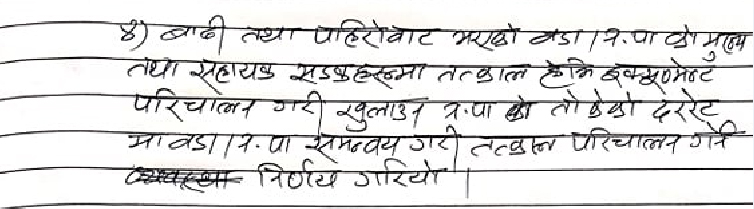 ४) बाढी तथा पहिरोबाट भएको वडा / न.पा को मुख्य
तथा सहायक सडकहरुमा तत्काल हेभि इक्युपमेन्ट
परिचालन गरी खुलाउन न.पा को तोकेको दररेट
मा वडा / न.पा समन्वय गरी तत्काल परिचालन गर्ने
व्यवस्था निर्णय गरियो ।